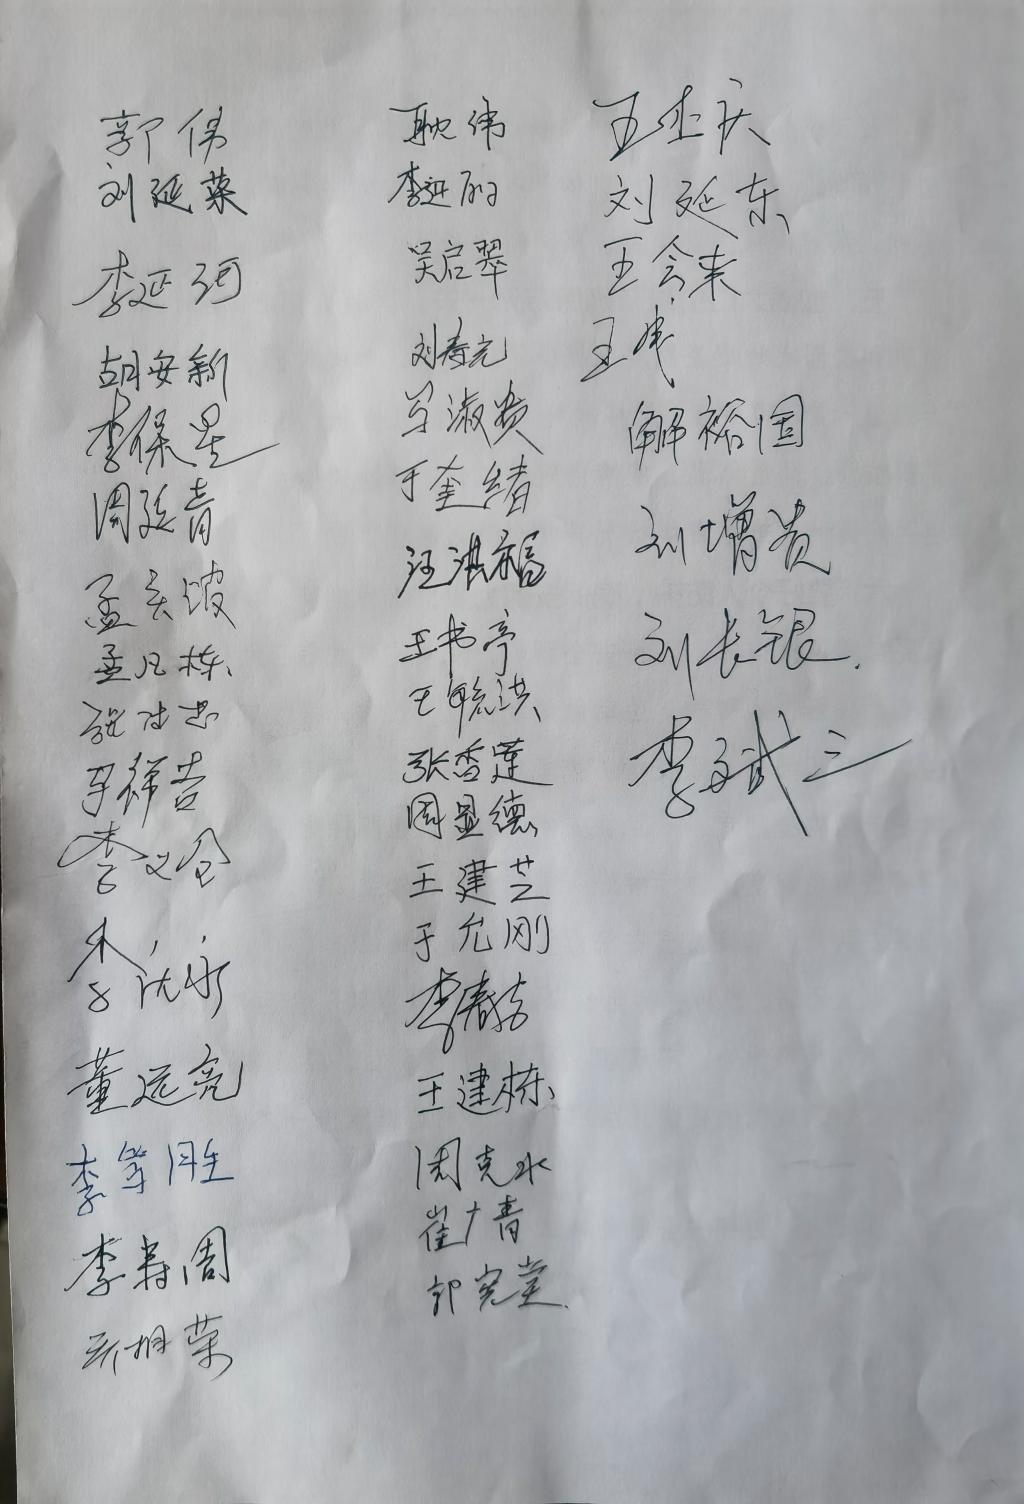 郭伟
刘延菜
李延河
胡安新
李保星
周延青
孟宪坡
孟凡栋
张
李祥吉
李义仓
李
董远亮
李等胜
李寿周
荣
耿伟
李延
吴启翠
刘寿元
淑贵
于奎绪
汪洪福
王书亭
王毓洪
张香莲
周显德
王建芝
于允刚
李春
王建栋
周克水
崔广青
郭宪堂
王庆
刘延东
王会来
王成
解裕国
刘增贵
刘长银
李斌